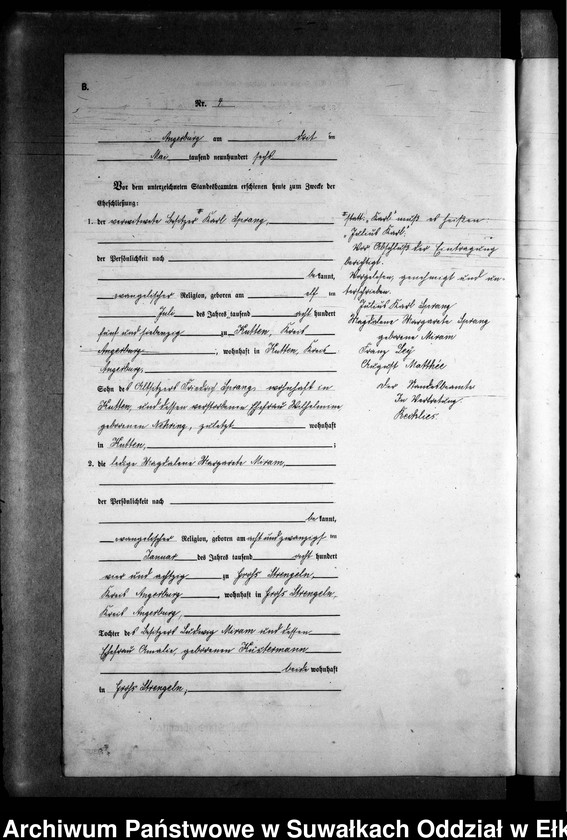 B.
Nr. 4
Angerburg am drei ten
Mai tausend neunhundert sechs
Vor dem unterzeichneten Standesbeamten erschienen heute zum Zwecke der
Eheschließung:
1. der verwitwete Besitzer Karl Sprang,
der Persönlichkeit nach
be kannt,
evangelischer Religion, geboren am elf ten
Juli des Jahres tausend acht hundert
fünf und siebenzig zu Kutten, Kreis
Angerburg, wohnhaft in Kutten, Kreis
Angerburg,
Sohn des Altsitzers Friedrich Sprang, wohnhaft in
Kutten, und dessen verstorbene Ehefrau Wilhelmine
geborenen Nehring, zuletzt wohnhaft
in Kutten, ;
2. die ledige Magdalene Margarete Miram,
der Persönlichkeit nach
be kannt,
evangelischer Religion, geboren am acht und zwanzigs ten
Januar des Jahres tausend acht hundert
vier und achtzig zu Groß Strengeln,
Kreis Angerburg, wohnhaft in Groß Strengeln,
Kreis Angerburg,
Tochter des Besitzers Ludwig Miram und dessen
Ehefrau Amalie, geborenen Küstermann
beide wohnhaft
in Groß Strengeln,
statt: „Karl“ muß es heißen
„Julius Karl“.
Vor Abschluß der Eintragung
berichtigt.
Vorgelesen, genehmigt und un-
terschrieben.
Julius Karl Sprang
Magdalene Margarete Sprang
geborene Miram
Franz Ley
August Matthée
Der Standesbeamte
In Vertretung
Rechlies
Archiwum Państwowe w Suwałkach Oddział w Ełk